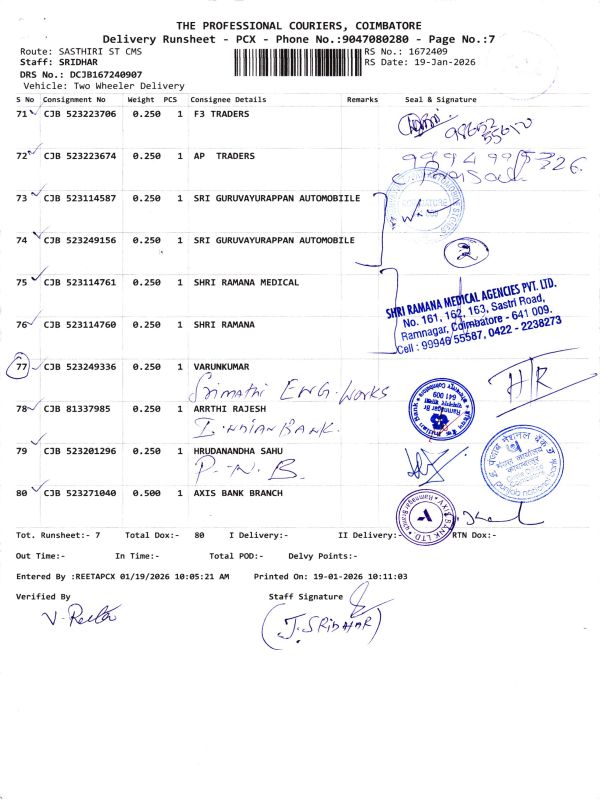 THE PROFESSIONAL COURIERS, COIMBATORE
Delivery Runsheet - PCX - Phone No.:9047080280 - Page No.:7
Route: SASTHIRI ST CMS RS No.: 1672409
Staff: SRIDHAR RS Date: 19-Jan-2026
DRS No.: DCJB167240907
Vehicle: Two Wheeler Delivery
S No Consignment No Weight PCS Consignee Details Remarks Seal & Signature
71 CJB 523223706 0.250 1 F3 TRADERS
72 CJB 523223674 0.250 1 AP TRADERS
73 CJB 523114587 0.250 1 SRI GURUVAYURAPPAN AUTOMOBIILE
74 CJB 523249156 0.250 1 SRI GURUVAYURAPPAN AUTOMOBILE
2
75 CJB 523114761 0.250 1 SHRI RAMANA MEDICAL
SHRI RAMANA MEDICAL AGENCIES PVT. LTD.
No. 161, 162, 163, Sastri Road,
Ramnagar, Coimbatore - 641 009.
Cell : 99946 55587, 0422 - 2238273
76 CJB 523114760 0.250 1 SHRI RAMANA
77 CJB 523249336 0.250 1 VARUNKUMAR
Srimathi ENG. WORKS
H/R
78 CJB 81337985 0.250 1 ARRTHI RAJESH
INDIAN BANK.
641 009
79 CJB 523201296 0.250 1 HRUDANANDHA SAHU
P.N.B.
80 CJB 523271040 0.500 1 AXIS BANK BRANCH
AXIS BANK LTD
Ramnagar Branch
Tot. Runsheet:- 7 Total Dox:- 80 I Delivery:- II Delivery:- RTN Dox:-
Out Time:- In Time:- Total POD:- Delvy Points:-
Entered By :REETAPCX 01/19/2026 10:05:21 AM Printed On: 19-01-2026 10:11:03
Verified By Staff Signature
V. Reeta
(J. SRIDHAR)